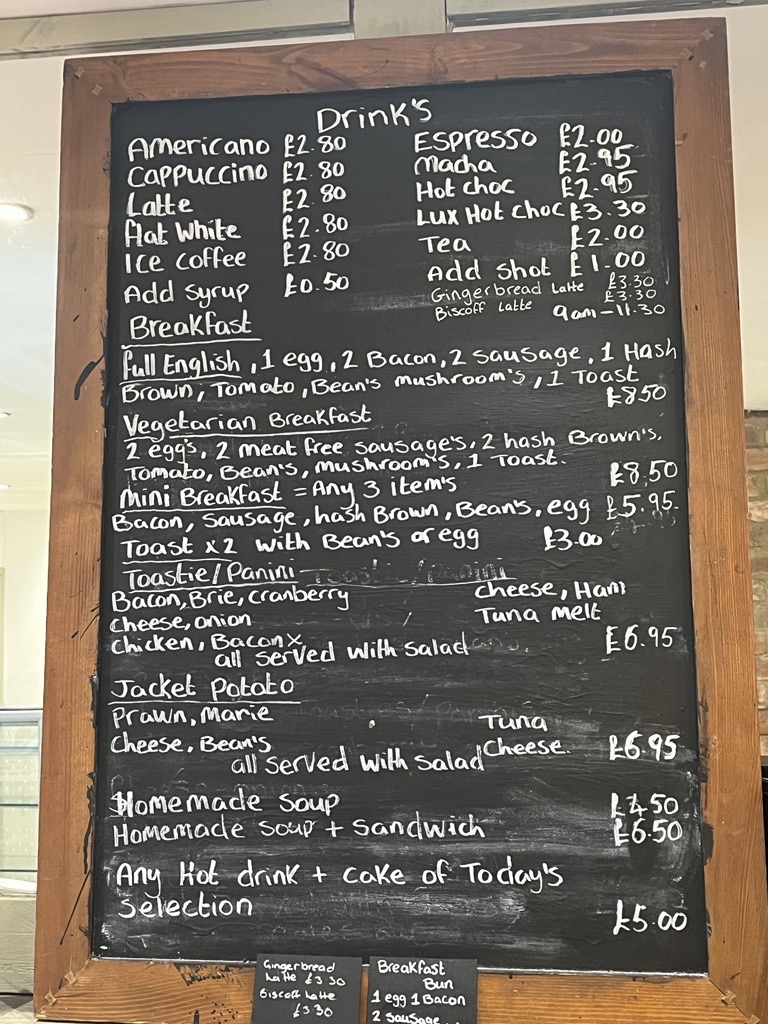 Drink's
Americano £2.80 Espresso £2.00
Cappuccino £2.80 Macha £2.95
Latte £2.80 Hot choc £2.95
Flat White £2.80 Lux Hot choc £3.30
Ice coffee £2.80 Tea £2.00
Add syrup £0.50 Add shot £1.00
Gingerbread Latte £3.30
Biscoff Latte £3.30
Breakfast 9am-11.30
Full English, 1 egg, 2 Bacon, 2 sausage, 1 Hash
Brown, Tomato, Bean's mushroom's, 1 Toast
£8.50
Vegetarian Breakfast
2 egg's, 2 meat free sausage's, 2 hash Brown's,
Tomato, Bean's, mushroom's, 1 Toast. £8.50
Mini Breakfast = Any 3 item's
Bacon, Sausage, hash Brown, Bean's, egg £5.95
Toast x2 with Bean's or egg £3.00
Toastie/Panini
Bacon, Brie, cranberry cheese, Ham
Cheese, onion Tuna melt
Chicken, Bacon x £6.95
all served with salad
Jacket Potato
Prawn, Marie Tuna
Cheese, Bean's Cheese. £6.95
all served with salad
Homemade soup £4.50
Homemade soup + sandwich £6.50
Any Hot drink + cake of Today's
Selection £5.00
Gingerbread
Latte £3.30
Biscoff Latte
£3.30
Breakfast
Bun
1 egg 1 Bacon
2 sausage